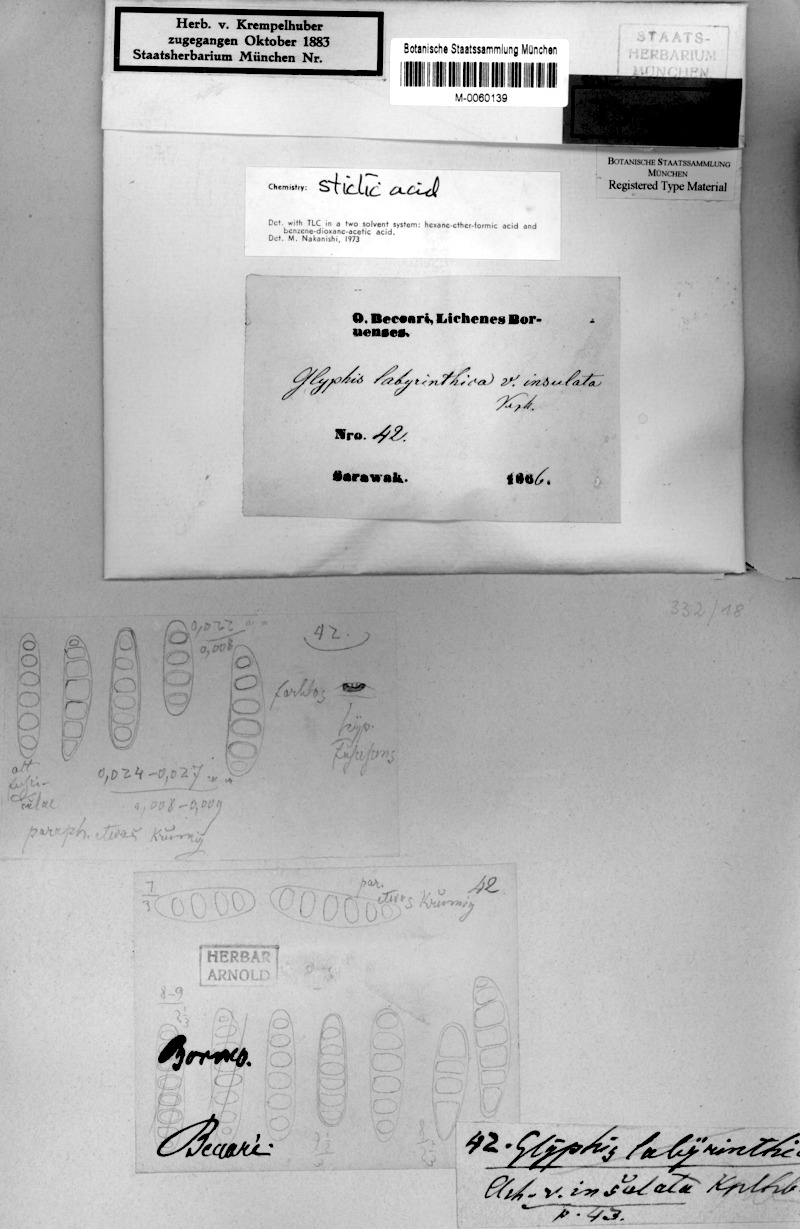 Herb. v. Krempelhuber
zugegangen Oktober 1883
Staatsherbarium München Nr.
Botanische Staatssammlung München
M-0060139
STAATS-
HERBARIUM
MÜNCHEN
BOTANISCHE STAATSSAMMLUNG
MÜNCHEN
Registered Type Material
Chemistry: stictic acid
Det. with TLC in a two solvent system: hexane-ether-formic acid and
benzene-dioxane-acetic acid.
Det. M. Nakanishi, 1973
O. Beccari, Lichenes Bor-
neenses.
Glyphis labyrinthica v. insulata
Nro. 42.
Sarawak. 1866.
332/18
0,022
0,008
42.
farblos
hyp.
0,024-0,027
0,008-0,009
paraph. etwas
7
3
par. 42
etwas
HERBAR
ARNOLD
8-9
Borneo.
Beccari.
42. Glyphis labyrinthic
Ach. v. insulata Krplhb
p. 43.